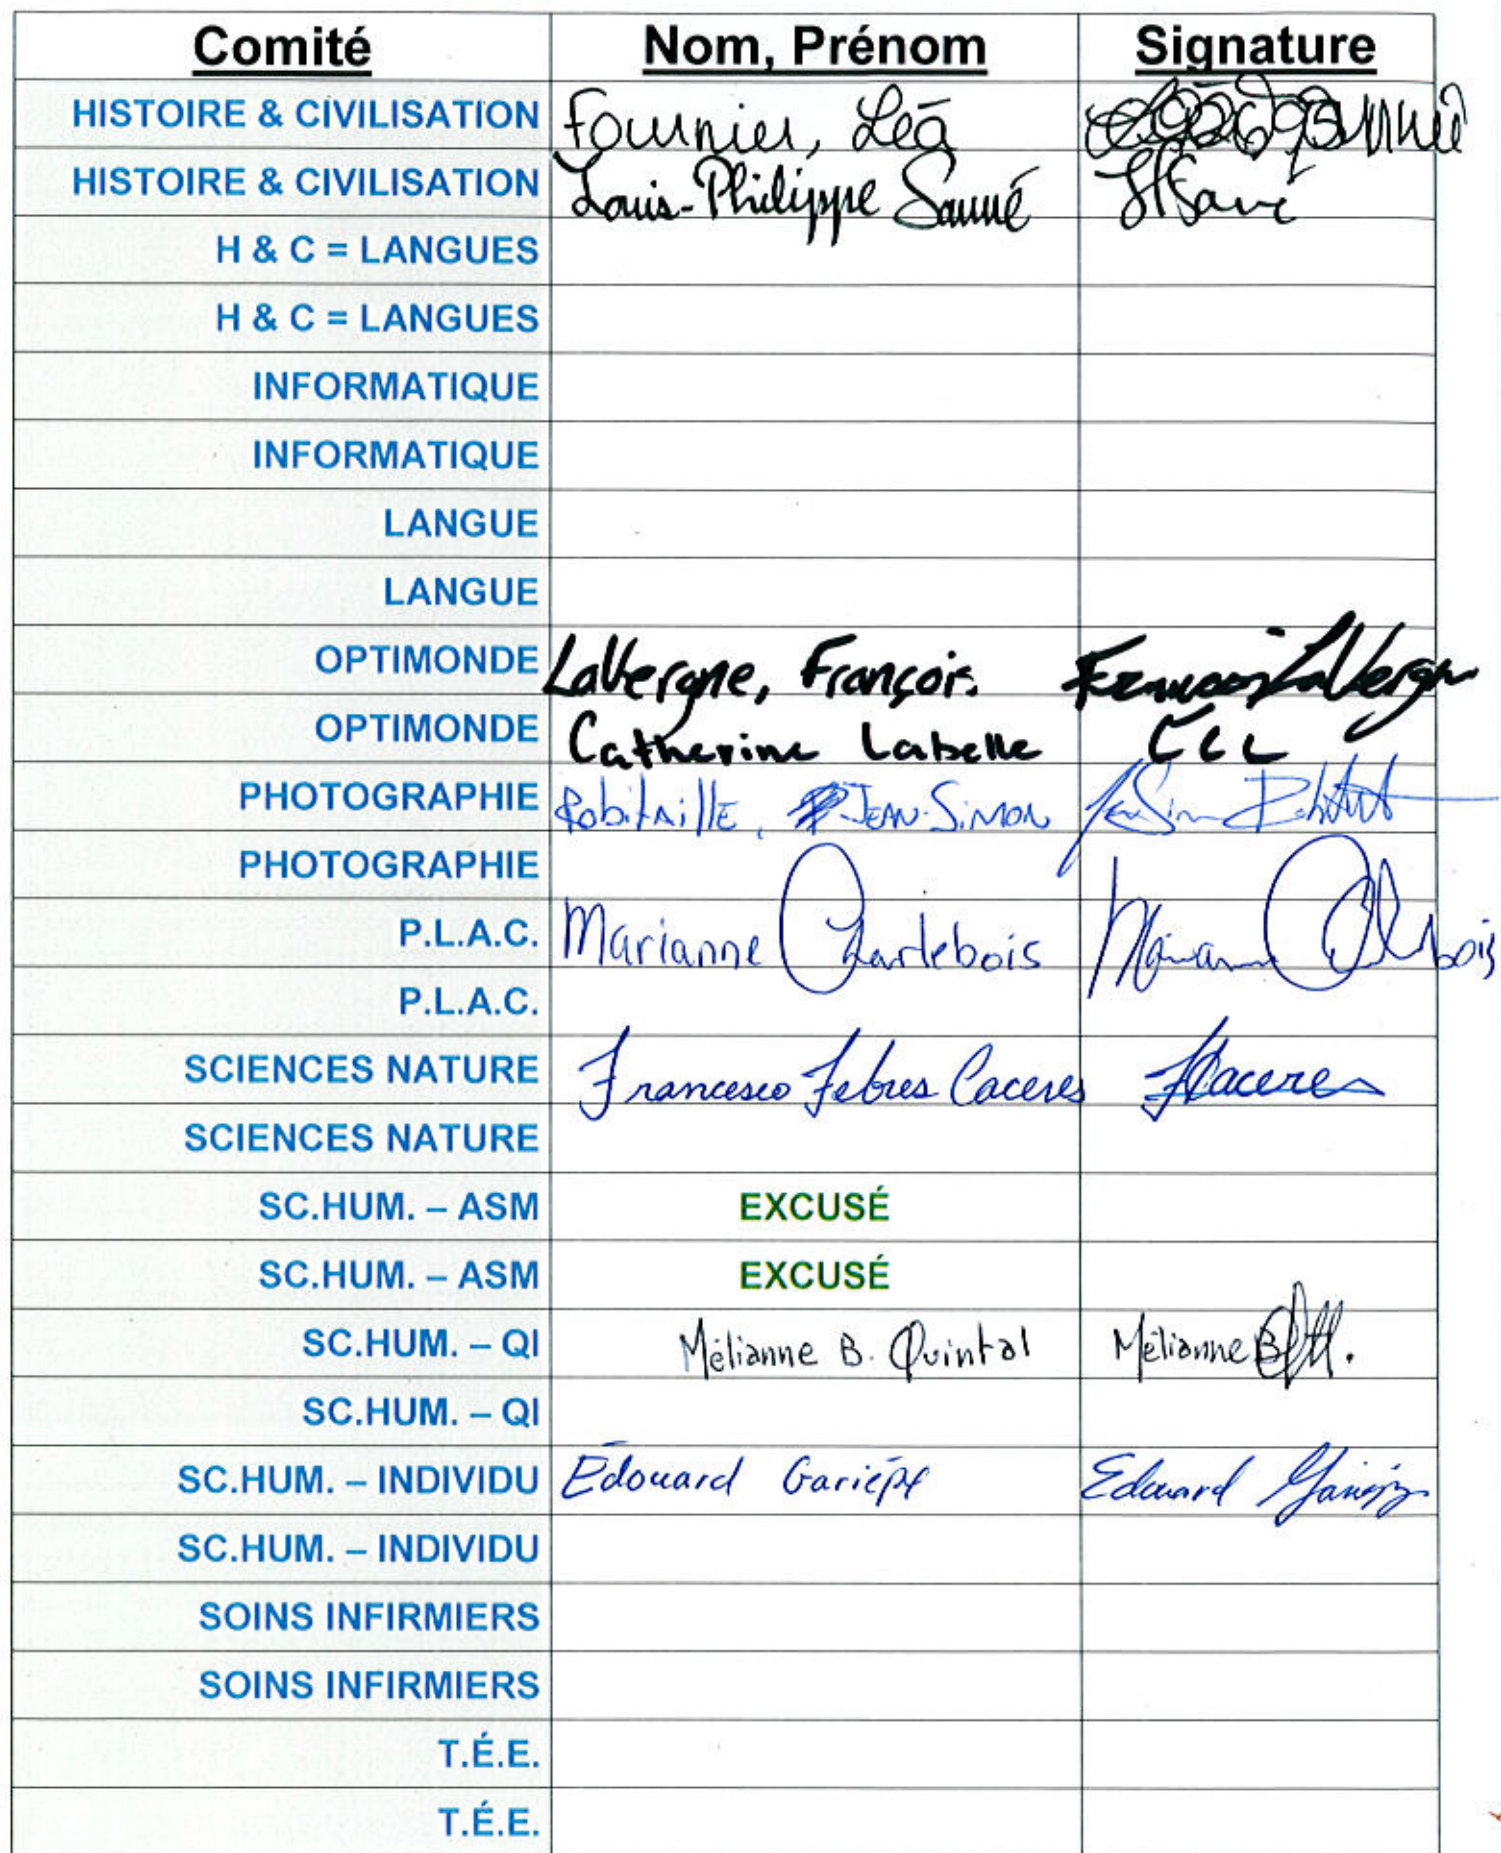 Comité Nom, Prénom Signature
HISTOIRE & CIVILISATION Fournier, Léa
HISTOIRE & CIVILISATION Louis-Philippe Sauvé
H & C = LANGUES
H & C = LANGUES
INFORMATIQUE
INFORMATIQUE
LANGUE
LANGUE
OPTIMONDE LaVergne, François François LaVergne
OPTIMONDE Catherine Labelle
PHOTOGRAPHIE Robitaille, Jean-Simon
PHOTOGRAPHIE
P.L.A.C. Marianne Charlebois
P.L.A.C.
SCIENCES NATURE Francesco Febres Caceres
SCIENCES NATURE
SC.HUM. – ASM EXCUSÉ
SC.HUM. – ASM EXCUSÉ
SC.HUM. – QI Mélianne B. Quintal Mélianne B
SC.HUM. – QI
SC.HUM. – INDIVIDU Édouard Gariépy Edouard Gariépy
SC.HUM. – INDIVIDU
SOINS INFIRMIERS
SOINS INFIRMIERS
T.É.E.
T.É.E.